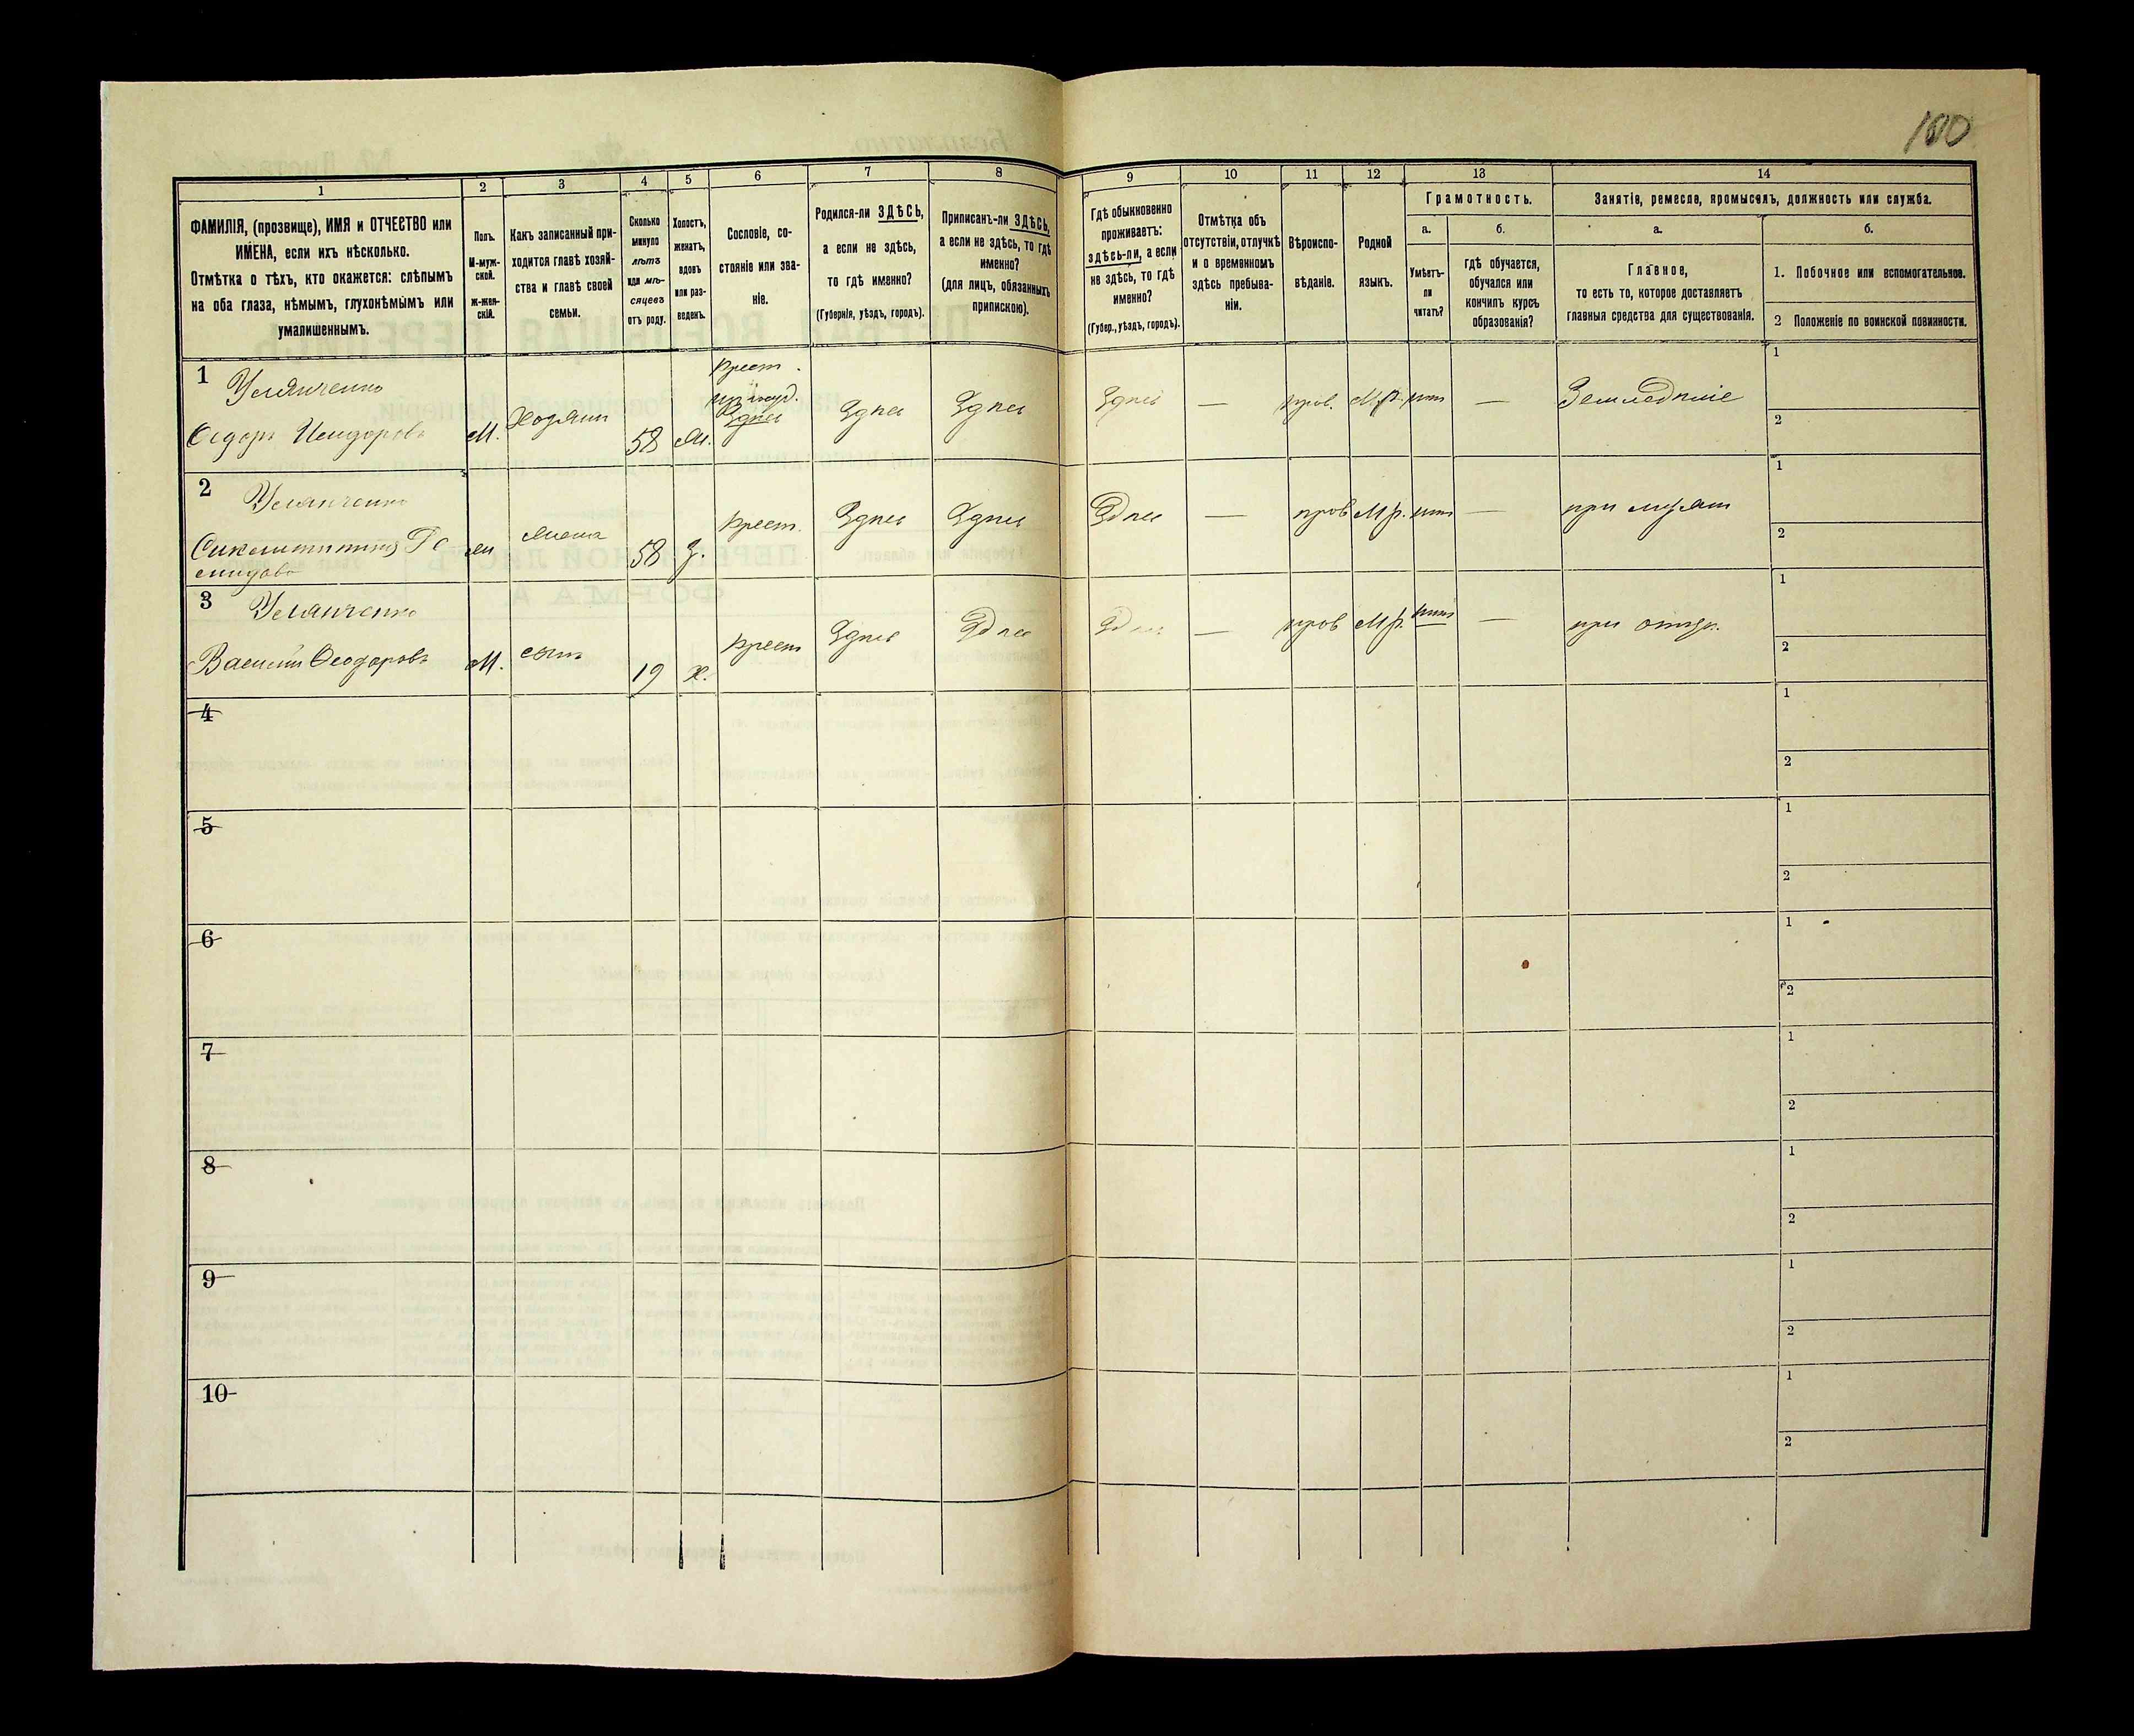 100
1 2 3 4 5 6 7 8 9 10 11 12 13 14
ФАМИЛІЯ, (прозвище), ИМЯ и ОТЧЕСТВО или
ИМЕНА, если ихъ нѣсколько.
Отмѣтка о тѣхъ, кто окажется: слѣпымъ
на оба глаза, нѣмымъ, глухонѣмымъ или
умалишеннымъ.
Полъ.
М-муж-
ской.
Ж-жен-
скій.
Какъ записанный при-
ходится главѣ хозяй-
ства и главѣ своей
семьи.
Сколько
минуло
лѣтъ
или мѣ-
сяцевъ
отъ роду.
Холостъ,
женатъ,
вдовъ
или раз-
веденъ.
Сословіе, со-
стояніе или зва-
ніе.
Родился-ли ЗДѢСЬ,
а если не здѣсь,
то гдѣ именно?
(Губернія, уѣздъ, городъ).
Приписанъ-ли ЗДѢСЬ,
а если не здѣсь, то гдѣ
именно?
(для лицъ, обязанныхъ
припискою).
Гдѣ обыкновенно
проживаетъ:
здѣсь-ли, а если
не здѣсь, то гдѣ
именно?
(Губер., уѣздъ, городъ).
Отмѣтка объ
отсутствіи, отлучкѣ
и о временномъ
здѣсь пребыва-
ніи.
Вѣроиспо-
вѣданіе.
Родной
языкъ.
Грамотность.
а.
Умѣетъ-
ли
читать?
б.
гдѣ обучается,
обучался или
кончилъ курсъ
образованія?
Занятіе, ремесло, промыселъ, должность или служба.
а.
Главное,
то есть то, которое доставляетъ
главныя средства для существованія.
б.
1. Побочное или вспомогательное.
2 Положеніе по воинской повинности.
1 Крест.
Здѣсь
Ѳедоръ Исидоровъ М. Хозяинъ 58 Здѣсь Здѣсь Здѣсь — прав. М.р. нѣтъ — Земледѣліе 1
2
2
58 Крест. Здѣсь Здѣсь Здѣсь — прав М.р. нѣтъ — при 1
2
3
Василій Ѳеодоровъ М. сынъ 19 х. Крест Здѣсь Здѣсь Здѣсь — прав М.р. нѣтъ — при отцѣ. 1
2
4 1
2
5 1
2
6 1
2
7 1
2
8 1
2
9 1
2
10 1
2